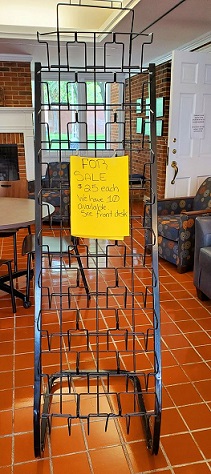 FOR
SALE
$25 each
We have 10
available
See front desk